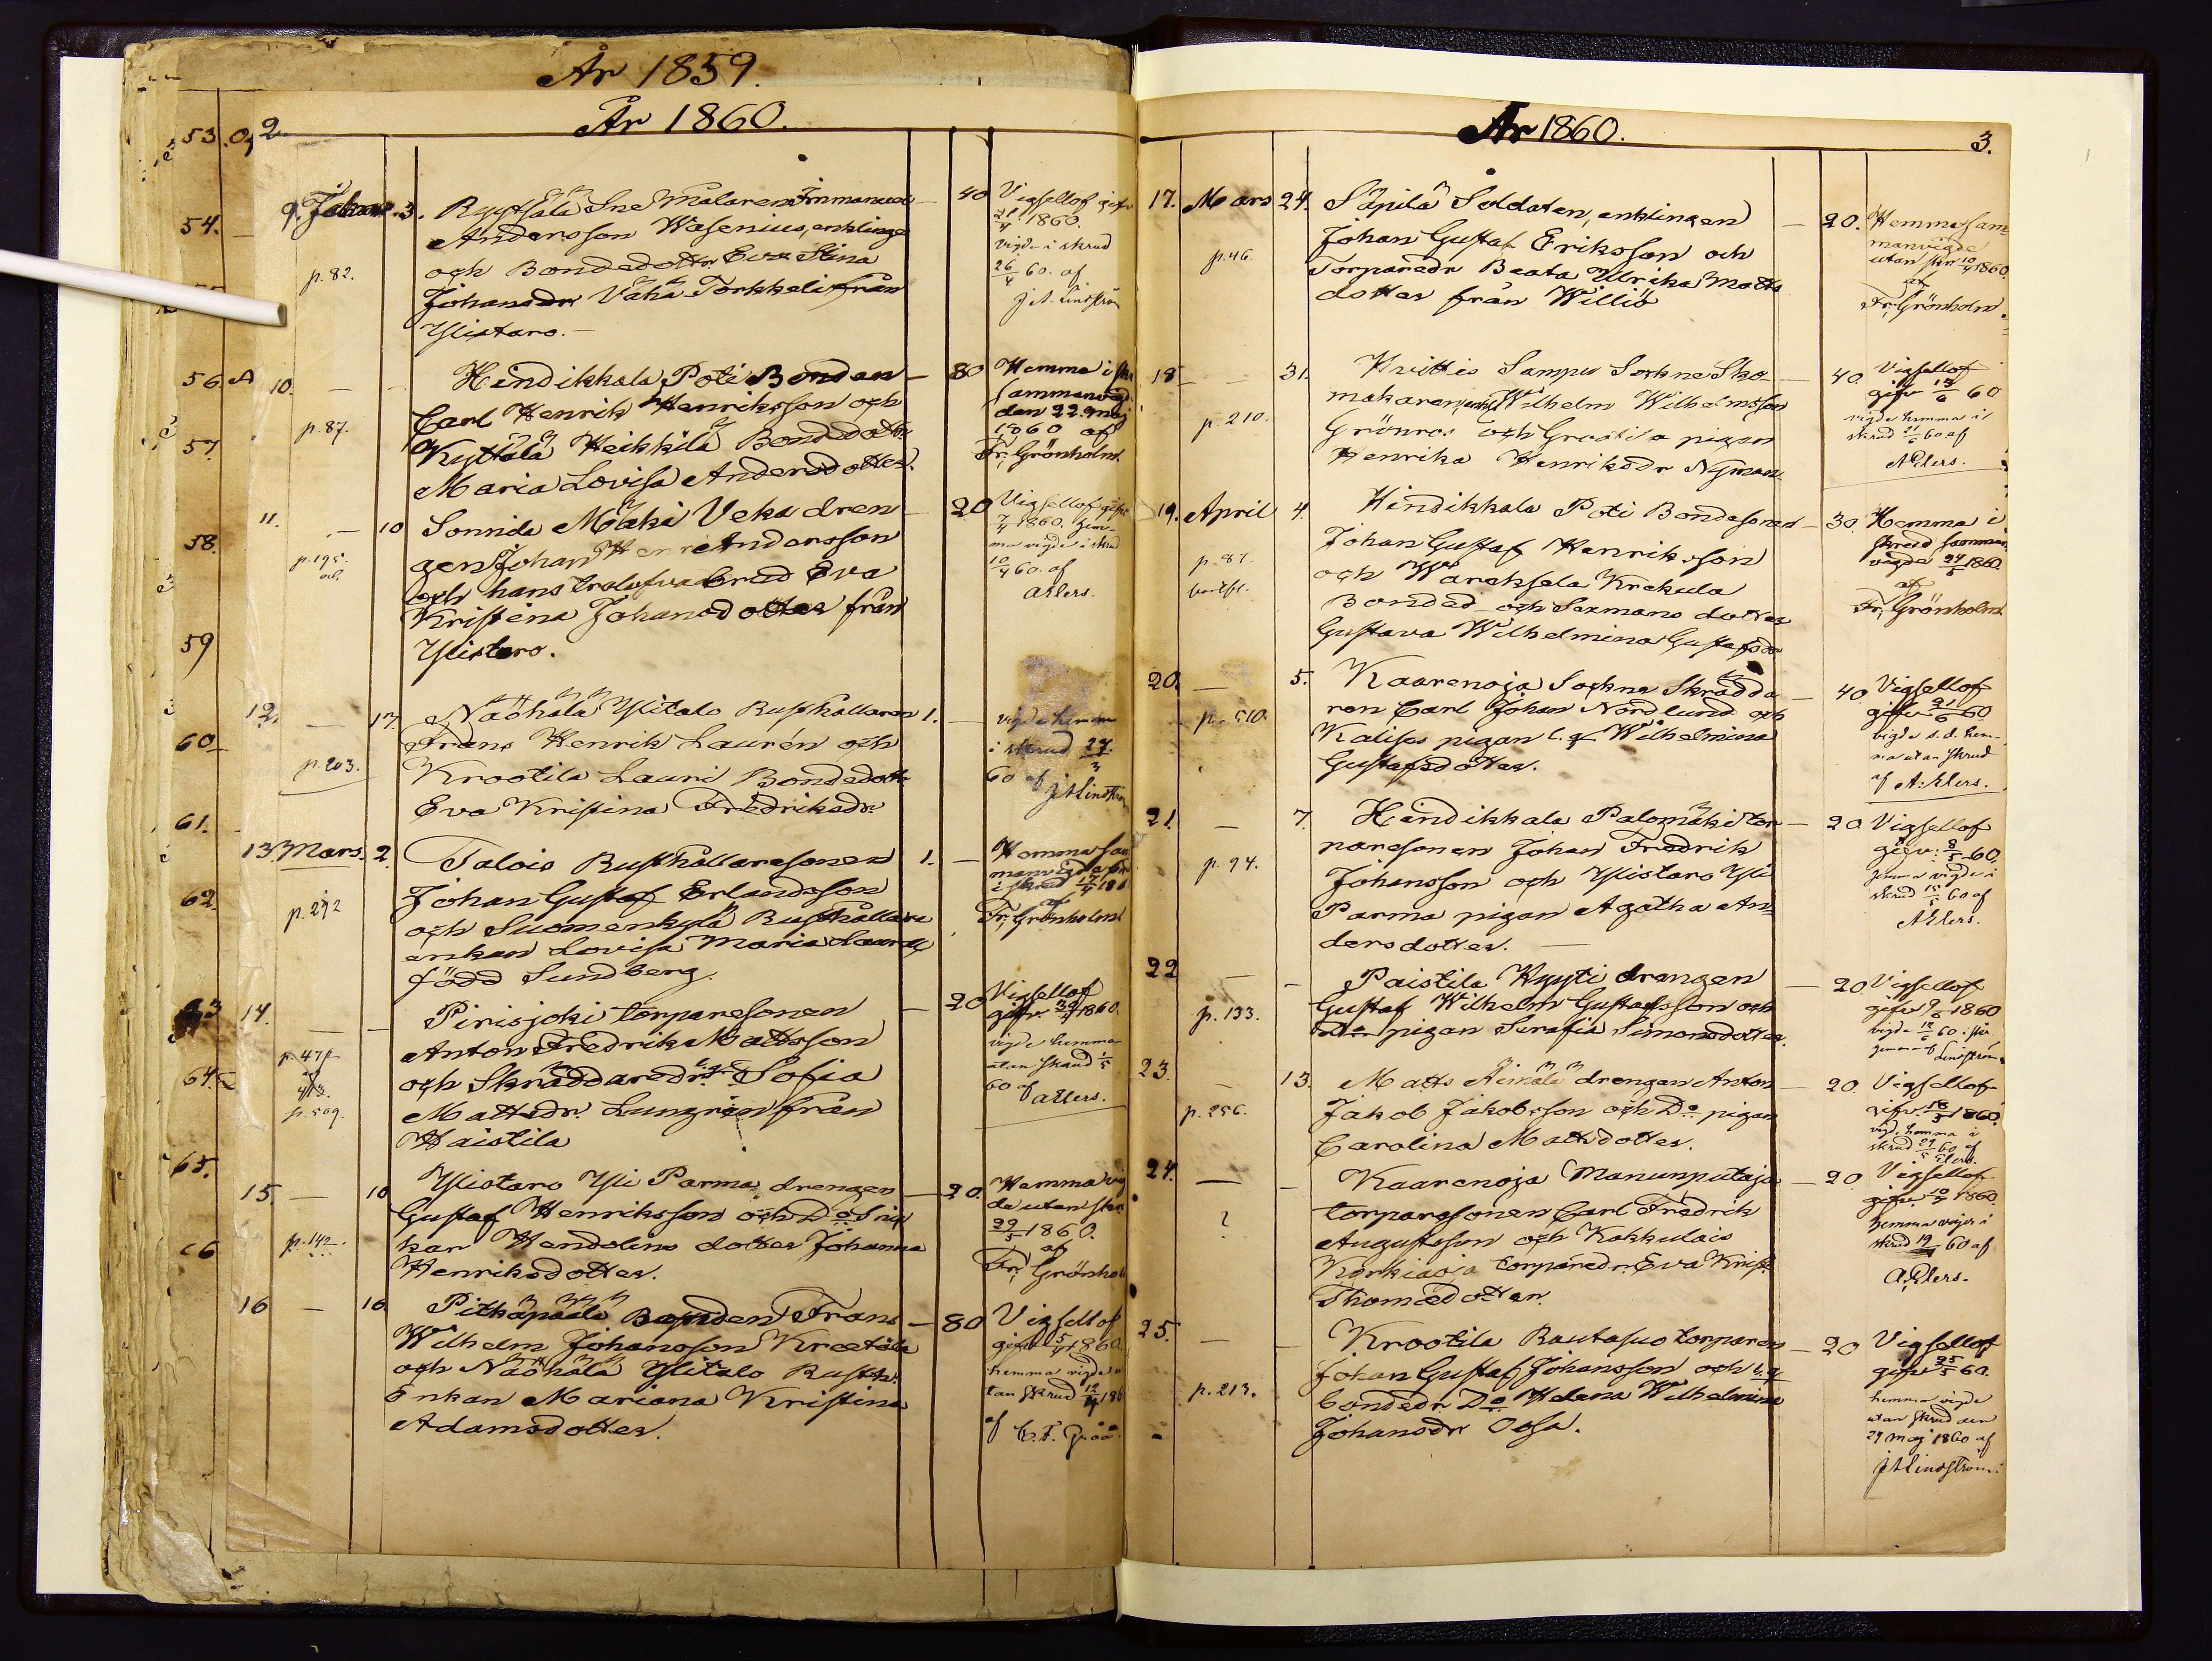 År 1859.
53.
54.
56. A
57.
58.
59
60
61.
62.
63
64.
65.
66
2
År 1860.
9. 3.
p. 82.
Målaren Immanuel
Andersson Wasenius, enkling
och Bondedottr. Eva Stina
Johansdr Vähä Torkkeli från
Ylistaro.
40
Vigsellof gifv
1860.
vigde i skrud
26/4 60. af
J A Lindström
10. — —
p. 87.
Hendikkala Poti Bonden
Carl Henrik Henriksson och
Kyttälä Heikkilä Bondedottr
Maria Lovisa Andersdotter.
80
Hemma i skr
sammanvigd
den 22 maj
1860 af
Fr. Grönholm.
11. — 10
p. 195.
Sonnila Mäki Veka dren
gen Johan Andersson
och hans trolofvade brud Eva
Kristina Johansdotter från
Ylistaro.
20
Vigsellof gifv
7/4 1860. hem-
ma vigde i skrud
10/4 60. af
Ahlers.
12. — 17
p. 203.
Näöhälä Ylitalo Rusthållaren
Frans Henrik Laurén och
Krootila Lauri Bondedottr
Eva Kristina Fredriksdr.
1. —
vigde hemma
i skrud 27/3
60 af
J A Lindström
13 Mars. 2.
p. 292
Talois Rusthållaresonen
Johan Gustaf Erlandsson
och Suomenkylä Rusthållare
enkan Lovisa Maria
född Sundberg.
1. —
Hemma sam
manvigde
i skrud 17/4 186
af
Fr. Grönholm
14. — —
p. 471
p. 509.
Pirisjoki torparesonen
Anton Fredrik Mattsson
och Skräddaredr. Sofia
Mattsdr. Lungrén från
Haistila
— 20
Vigsellof
gifv. 1860.
vigde hemma
utan skrud 1/5
60 af
Ahlers.
15. — 10
p. 142.
Ylistaro Yli Parma drengen
Gustaf Henriksson och Do
kar Hendelins dotter Johanna
Henriksdotter.
— 20.
Hemma vig
de utan skr
29/5 1860.
af
Fr. Grönhol
16 — 16
Pitkäpäälä Bonden Frans
Wilhelm Johansson Kreetälä
och Näöhälä Ylitalo Rusth.
Enkan Mariana Kristina
Adamsdotter.
— 80
Vigsellof
gifv 5/4 1860.
hemma vigde u
tan skrud 12/4 186
af C. F. Gröö.
År 1860.
3.
17. Mars 24.
p. 46.
Säpilä Soldaten, enklingen
Johan Gustaf Eriksson och
Torparedr Beata Ulrika Matts
dotter från Williö
— 20.
Hemma sam
manvigde
utan skr 10/4 1860.
af
Fr. Grönholm.
18 — 31.
p. 210.
Kvittis Sampu Sockne Sko
makaren, enkl Wilhelm Wilhelmsson
Grönros och Grootila pigan
Henrika Henriksdr Nyman
— 40.
Vigsellof
gifv 13/6 60
vigde hemma i
skrud 21/6 60 af
Ahlers.
19. April 4.
p. 87.
Hindikkala Poti Bondesonen
Johan Gustaf Henriksson
och Wareksela Krekula
Bonded och Sexmans dotter
Gustava Wilhelmina Gustafsdr
— 30
Hemma i
skrud samman
vigde 24/5 1860.
af
Fr. Grönholm
20. — 5.
p. 510.
Kaarenoja Sockne Skrädda
ren Carl Johan Nordlund och
Kalisis pigan l. q. Wilhelmina
Gustafsdotter.
— 40
Vigsellof
gifv 21/6 60
vigde s. d. hem-
ma utan skrud
af Ahlers.
21. — 7.
p. 94.
Hindikkala Palomäki tor
paresonen Johan Fredrik
Johansson och Ylistaro Yli
Parma pigan Agatha An
dersdotter. —
— 20
Vigsellof
gifv. 8/5 60.
hemma vigde i
skrud 15/5 60 af
Ahlers.
22 — —
p. 133.
Paistila Kyyti drengen
Gustaf Wilhelm Gustafsson och
Do pigan Serafia Simonsdotter.
— 20
Vigsellof
gifv 9/6 1860
vigde 12/6 60 i skr
hemma af Lindström
23. — 13.
p. 256.
Matts Äimälä drengen Anton
Jakob Jakobsson och Do pigan
Carolina Mattsdotter.
— 20.
Vigsellof
gifv. 18/5 1860.
vigd. hemma i
skrud 29/5 60 af
Ahlers.
24. — —
?
Kaarenoja Manunputaja
torparesonen Carl Fredrik
Augustsson och Kokkulais
Korkiaoja torparedr. Eva Krist.
Thomædotter.
— 20
Vigsellof
gifv 1860.
hemma vigde i
skrud 19 60 af
Ahlers.
25. — —
p. 213.
Krootila Rautasuo torparen
Johan Gustaf Johansson och l. q.
bondedr. Do Helena Wilhelmina
Johansdr Ossa.
— 20
Vigsellof
gifv 25/5 60.
hemma vigde
utan skrud den
29 maj 1860 af
J A Lindström.